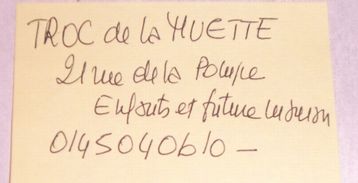 TROC de la MUETTE
21 rue de la Pompe
Enfants et future maman
0145040610 —